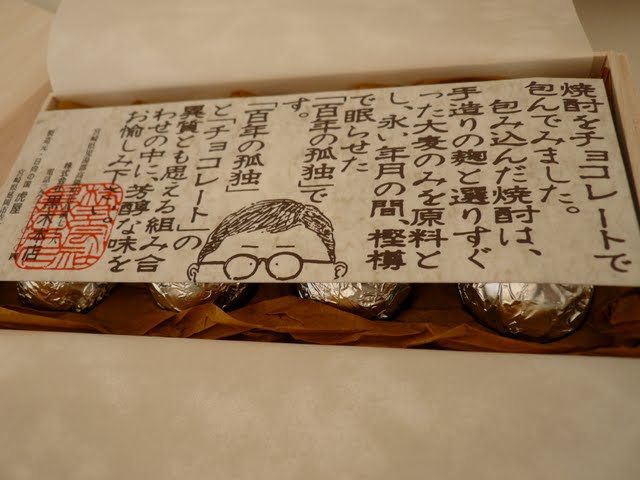 焼酎をチョコレートで
包んでみました。
包み込んだ焼酎は、
手造りの麹と選りすぐ
った大麦のみを原料と
し、永い年月の間、樫樽
で眠らせた
「百年の孤独」で
す。
「百年の孤独」
と「チョコレート」の
異質とも思える組み合
わせの中に、芳醇な味を
お愉しみ下さい。
黒木本店
虎屋